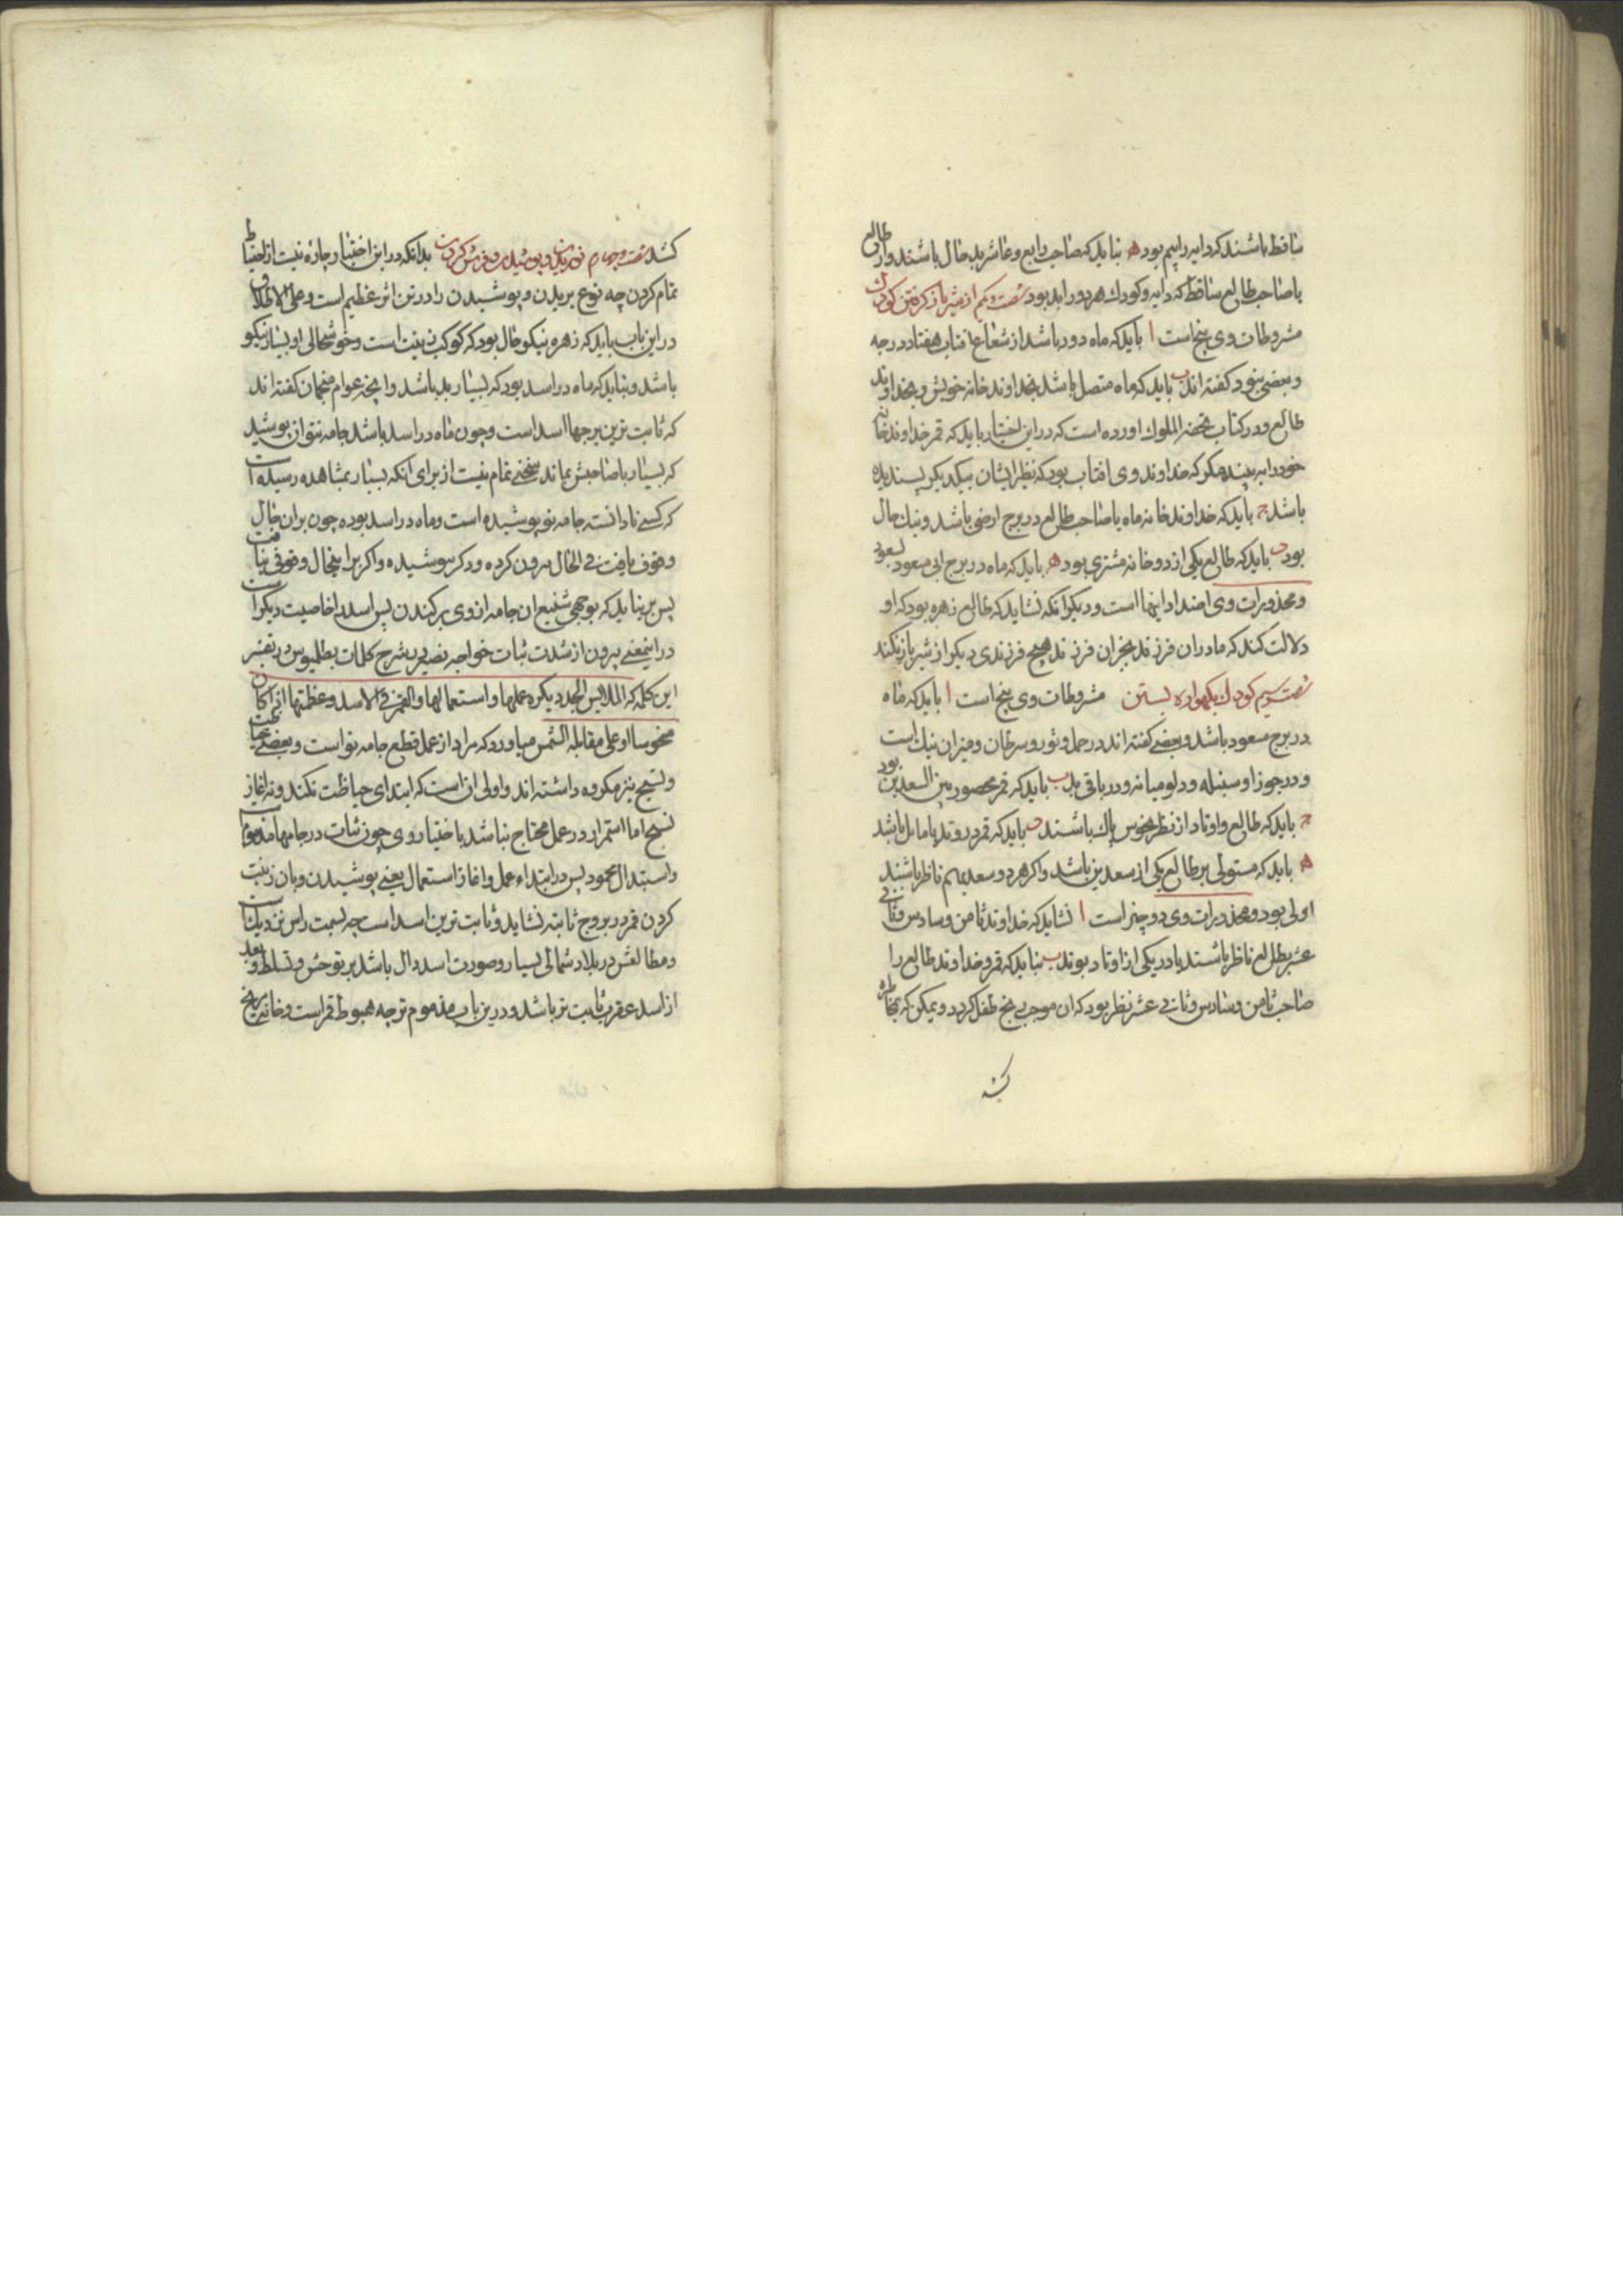 ساقط باشند که دایه را بیم بود ه نباید که صاحب رابع و عاشر بدحال باشند و از طالع
یا صاحب طالع ساقط که دایه و کودک هر دو را بد بود شصت و یکم از شیر باز کرفتن کودک
مشروطات وی پنج است ا باید که ماه دور باشد از شعاع افتاب هفتاد درجه
و بعضی بنود کفته اند ب باید که ماه متصل باشد بخداوند خانه خویش و بخداوند
طالع و در کتاب تحفة الملوک اورده است که در این اختیار باید که قمر خداوند خانه
خود را به بیند مکر که خداوند وی افتاب بود که نظر ایشان بیکدیکر پسندیده
باشد ج باید که خداوند خانه ماه یا صاحب طالع در برج ارضی باشد و نیک حال
بود د باید که طالع یکی از دو خانه مشتری بود ه باید که ماه در برج ابی مسعود بسعود
و محذورات وی اضداد اینها است و دیکر انکه نشاید که طالع زهره بود که او
دلالت کند که مادر ان فرزند بجز ان فرزند هیچ فرزندی دیکر از شیر باز نکند
شصت و سیم کودک بکهواره بستن مشروطات وی پنج است ا باید که ماه
در برج مسعود باشد و بعضی کفته اند در حمل و ثور و سرطان و میزان نیک است
و در جوزا و سنبله و دلو میانه و در باقی بد ب باید که قمر محصور بین السعدین بود
ج باید که طالع و اوتاد از نظر نحوس پاک باشند د باید که قمر در وتد یا مایل باشد
ه باید که مستولی بر طالع یکی از سعدین باشد و اکر هر دو سعد بهم ناظر باشند
اولی بود و محذورات وی دو چیز است ا نشاید که خداوند ثامن و سادس و ثانی
عشر بطالع ناظر باشند یا در یکی از اوتاد بوند ب نباید که قمر و خداوند طالع را
صاحب ثامن و سادس و ثانی عشر نظر بود که ان موجب رنج طفل کردد و یمکن که بمخاطره
کشد
کشد شصت و چهارم نو بریدن و پوشیدن و فرش کردن بدانکه در این اختیار چاره نیست از احتیاط
تمام کردن چه نوع بریدن و پوشیدن را در تن اثر عظیم است و علی الاطلاق
در این باب باید که زهره نیکو حال بود که کوکب زینت است و خوشحالی او بسیار نیکو
باشد و نباید که ماه در اسد بود که بسیار بد باشد و انچه عوام منجمان کفته اند
که ثابت ترین برجها اسد است و چون ماه در اسد باشد جامه نتوان پوشید
که بسیار با صاحبش بماند سخنی تمام نیست از برای انکه بسیار بمشاهده رسیده است
که کسی نادانسته جامه نو پوشیده است و ماه در اسد بوده چون بران حال
وقوف یافت فی الحال بیرون کرده و دکر نپوشیده و اکر بر اینحال وقوفی نیافت
پس بر نیاید که بوجهی شنیع ان جامه از وی برکندن پس اسد را خاصیت دیکر است
در اینمعنی بیرون از شدت ثبات خواجه نصیر در شرح کلمات بطلمیوس در تفسیر
این کلمه که الملابس الجدد یکره عملها و استعمالها و القمر فی الاسد و عظمتها اذا کان
منحوسا او علی مقابلة الشمس میاورد که مراد از عمل قطع جامه نو است و بعضی خیاطت
و نسیج نیز مکروه داشته اند و اولی ان است که ابتدای خیاطت نکند و نه اغاز
نسج اما استمرار در عمل محتاج نباشد باختیار وی چون ثبات در جامها مذموم است
و استبدال محمود پس در ابتداء عمل و اغاز استعمال یعنی پوشیدن و بان زینت
کردن قمر در بروج ثابته نشاید و ثابت ترین اسد است چه بسمت راس نزدیک است
و مطالعش در بلاد شمالی بسیار و صورت اسد دال باشد بر توحش و تسلط و بعد
از اسد عقرب ثابت تر باشد و درین باب مذموم تر چه هبوط قمر است و خانه مریخ